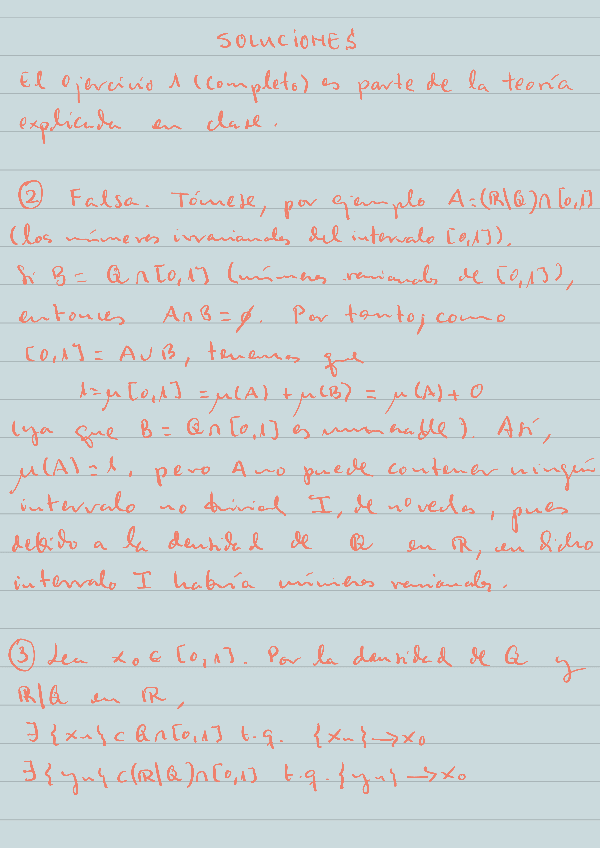 SOLUCIONES
El ejercicio 1 (completo) es parte de la teoría
explicada en clase.
② Falsa. Tómese, por ejemplo A=(ℝ\ℚ)∩[0,1]
(los números irracionales del intervalo [0,1]).
Si B = ℚ∩[0,1] (números racionales de [0,1]),
entonces A∩B=∅. Por tanto, como
[0,1] = A∪B, tenemos que
1=μ[0,1] = μ(A) + μ(B) = μ(A) + 0
(ya que B = ℚ∩[0,1] es numerable). Así,
μ(A) = 1, pero A no puede contener ningún
intervalo no trivial I, de nuevo, pues
debido a la densidad de ℚ en ℝ, en dicho
intervalo I habría números racionales.
③ Sea x₀ ∈ [0,1]. Por la densidad de ℚ y
ℝ\ℚ en ℝ,
∃{xₙ} ⊂ ℚ∩[0,1] t.q. {xₙ}→x₀
∃{yₙ} ⊂(ℝ\ℚ)∩[0,1] t.q. {yₙ}→x₀